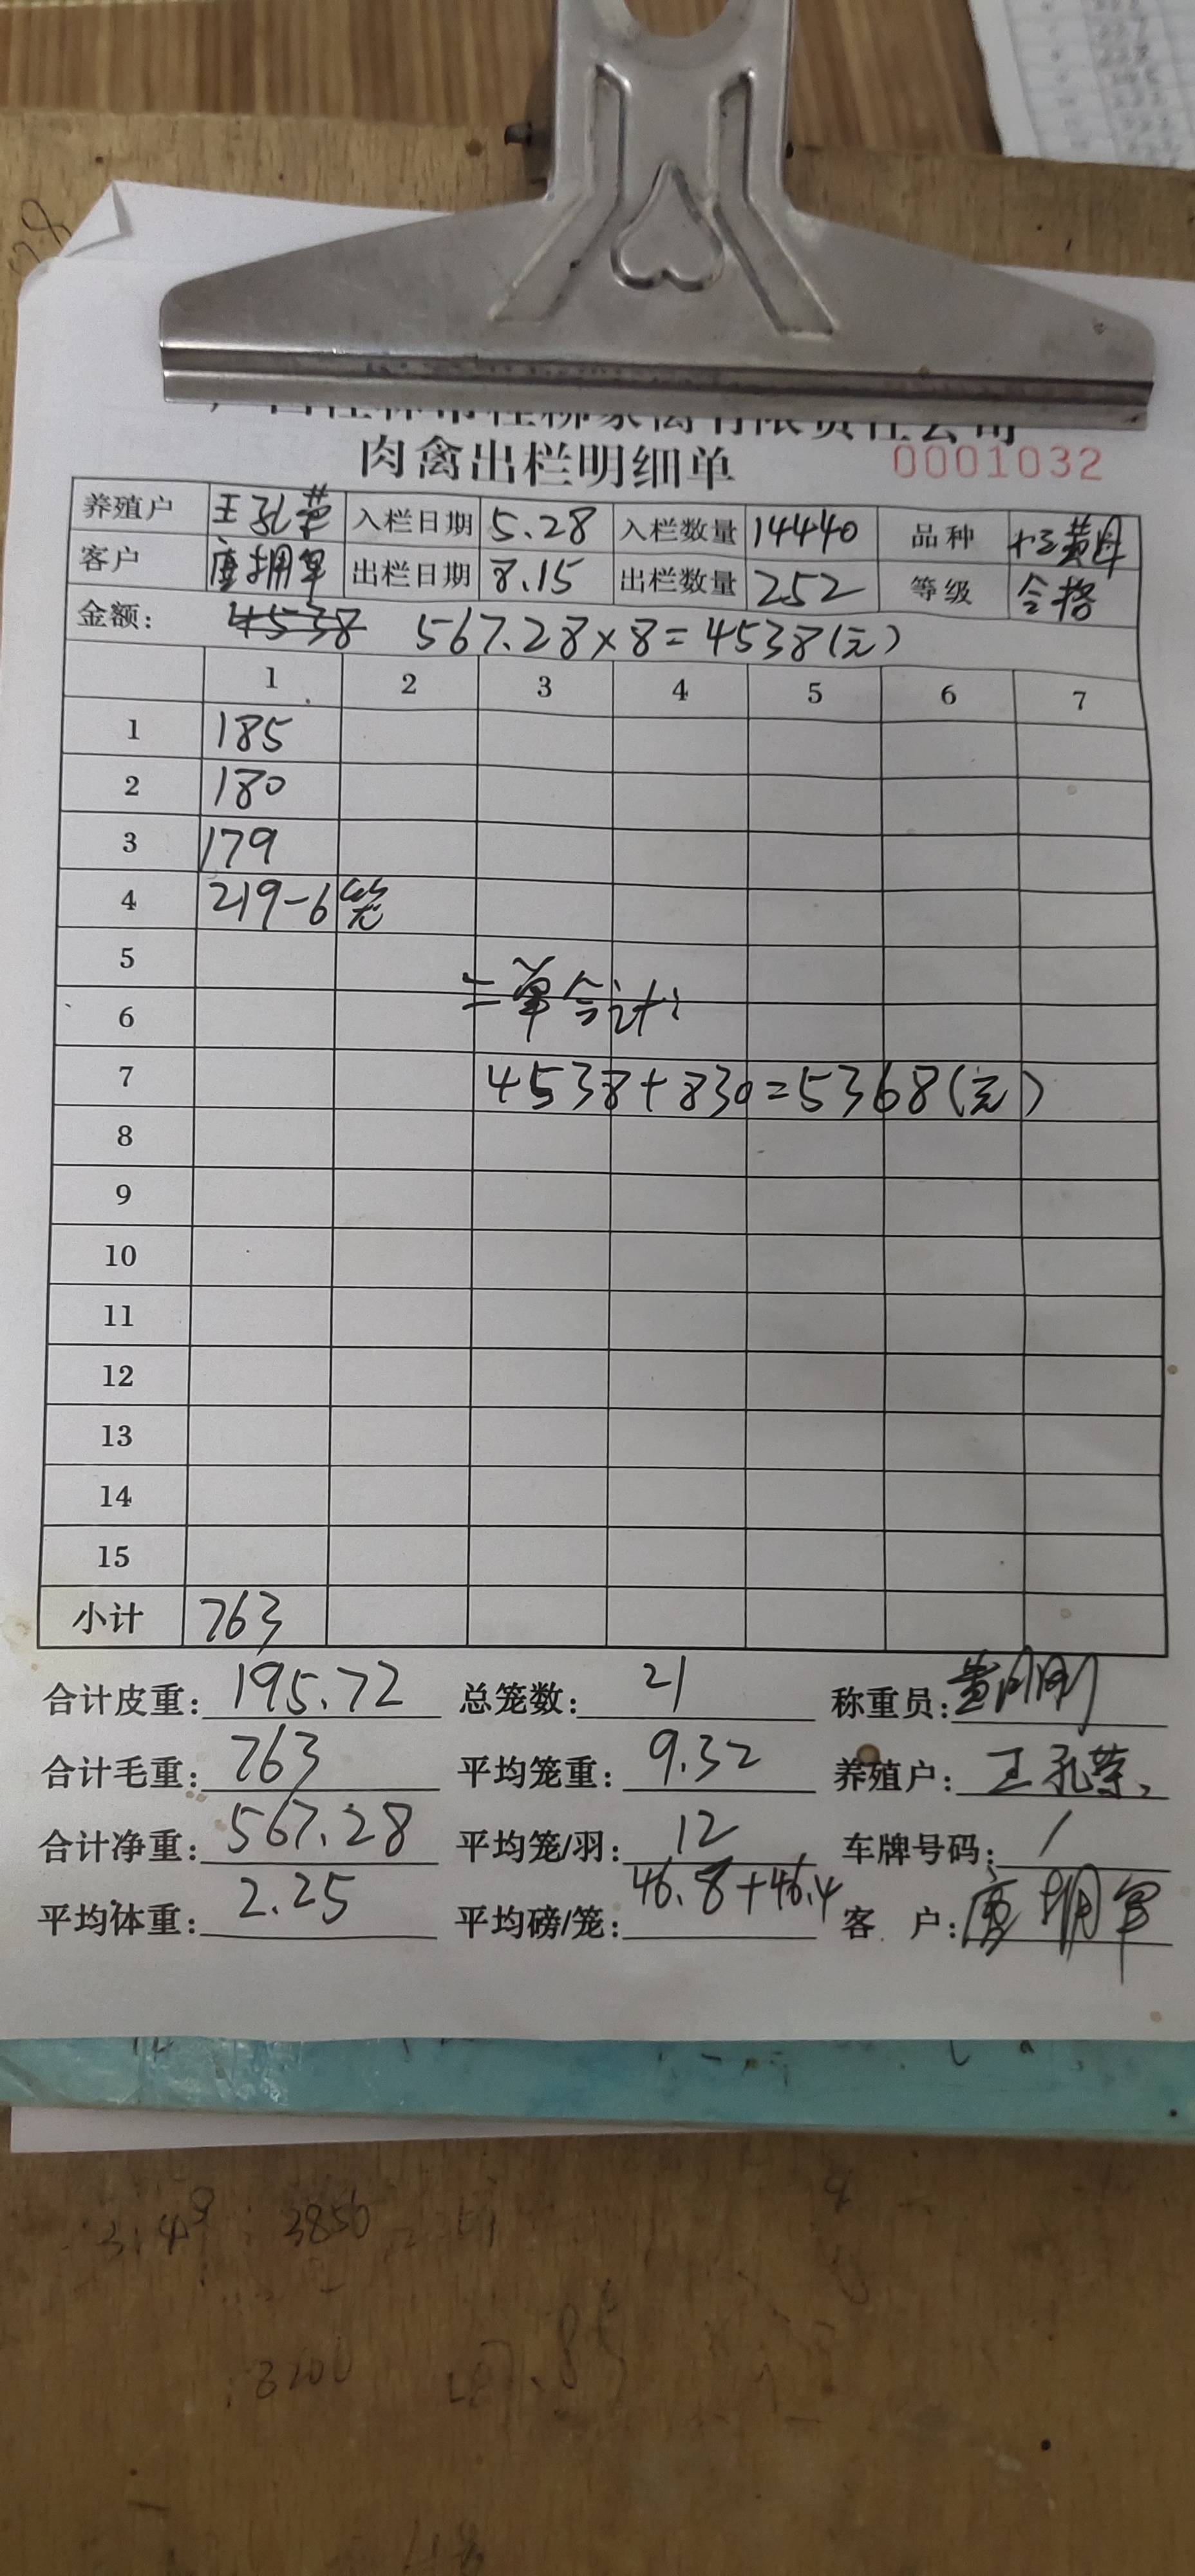 肉禽出栏明细单 0001032
养殖户 王孔荣 入栏日期 5.28 入栏数量 14440 品种
客户 唐拥军 出栏日期 8.15 出栏数量 252 等级 合格
金额: 4538 567.28×8=4538(元)
1 2 3 4 5 6 7
1 185
2 180
3 179
4 219-6笼
5
二单合计:
6
7 4538+830=5368(元)
8
9
10
11
12
13
14
15
小计 763
合计皮重: 195.72 总笼数: 21 称重员:
合计毛重: 763 平均笼重: 9.32 养殖户: 王孔荣
合计净重: 567.28 平均笼/羽: 12 车牌号码: /
平均体重: 2.25 平均磅/笼: 46.8+46.4 客 户: 唐拥军
3850